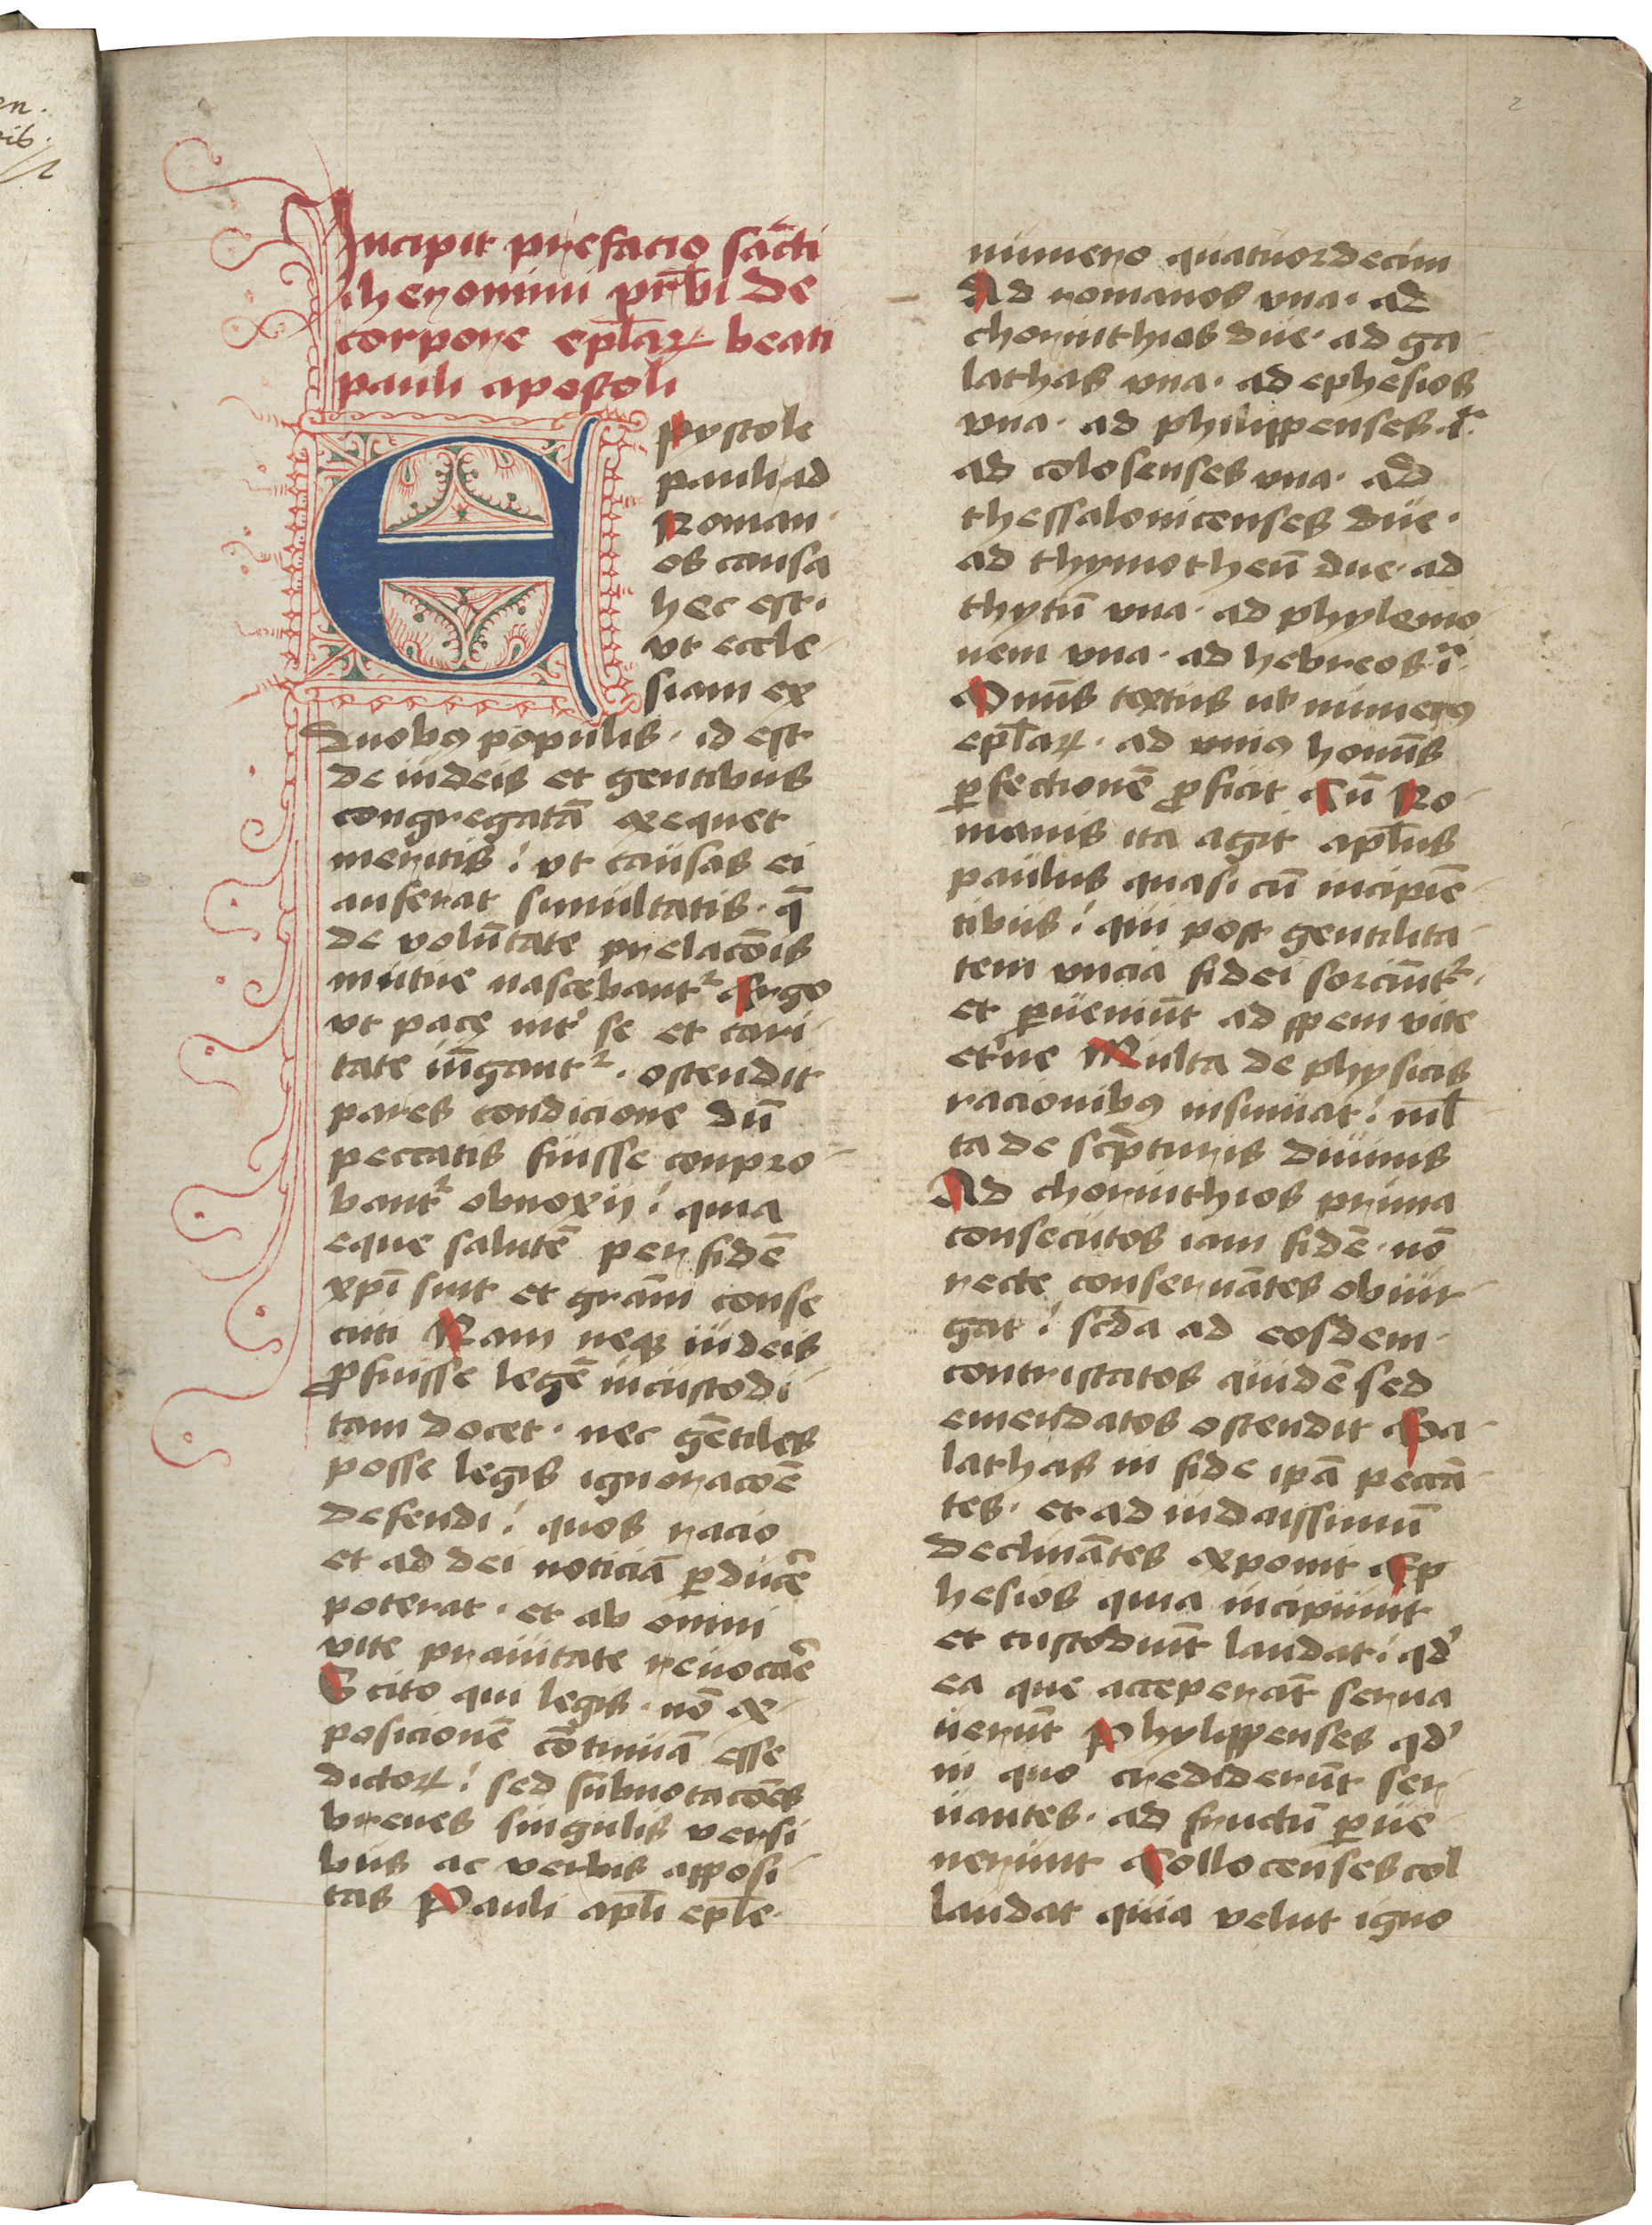 en.
rib.
2
Incipit prefacio sa̅cti
iheronimi pr̅b̅i de
corpore ep̅l̅aꝝ beati
pauli apostoli
Epystole
pauli ad
Roman
os causa
hec est·
vt eccle
siam ex
duobꝰ populis · id est
de iudeis et gentibus
congregata̅ exequet
meritis ⁝ vt causas ei
auferat simultatis · q̅
de volu̅tate prelaco̅is
mutue nascebantᷣ Ergo
vt pace intᷣ se et cari
tate iu̅gantᷣ · ostendit
pares condicione du̅
peccatis fuisse conpro
bantᷣ obnoxij ⁝ quia
eque salute̅ per fide̅
xp̅i sint et gra̅m conse
cuti Nam neqꝫ iudeis
ꝓfuisse lege̅ incustodi
tam docet · nec ge̅tiles
posse legis ignoraco̅e
defendi ⁝ quos racio
et ad dei noticia̅ ꝑduce̅
poterat · et ab omni
vite prauitate reuoca̅e
Scito qui legis · no̅ ex
posicione̅ co̅tinua̅ esse
dictoꝝ ⁝ sed subnotaco̅es
breues singulis versi
bus ac verbis apposi
tas Pauli ap̅l̅i ep̅l̅e
2
numero quatuordecim
Ad romanos vna · ad
chorinthios due · ad ga
lathas vna · ad ephesios
vna · ad philippenses · i̅ ·
ad colosenses vna · ad
thessalonicenses due ·
ad thymotheu̅ due · ad
thytu̅ vna · ad phylemo
nem vna · ad hebreos · i̅ ·
Om̅is textus vl̕ numerꝰ
ep̅l̅aꝝ · ad vniꝰ homi̅s
ꝑfectione̅ ꝓficit Cu̅ Ro
manis ita agit ap̅l̅us
paulus quasi cu̅ incipie̅
tibus ⁝ qui post gentilita
tem vncia fidei sorciu̅tᷣ ·
et ꝑueniu̅t ad spem vite
et̕ne Multa de physicis
racionibꝰ insinuat ⁝ mul
ta de sc̅pturis diuinis
Ad chorinthios prima
consecutos iam fide̅ · no̅
recte conserua̅tes obiur
gat ⁝ sc̅d̅a ad eosdem
contristatos quide̅ sed
emendatos ostendit Ga
lathas in fide ip̅a pecca̅
tes · et ad iudaissimu̅
declina̅tes exponit Ep
hesios quia incipiunt
et custodiu̅t laudat ⁝ qd̕
ea que accepera̅t serua
ueru̅t Phylippenses qd̕
in quo crediderunt ser
uantes · ad fructu̅ ꝑue
nerunt Collocenses col
laudat quia velut igno